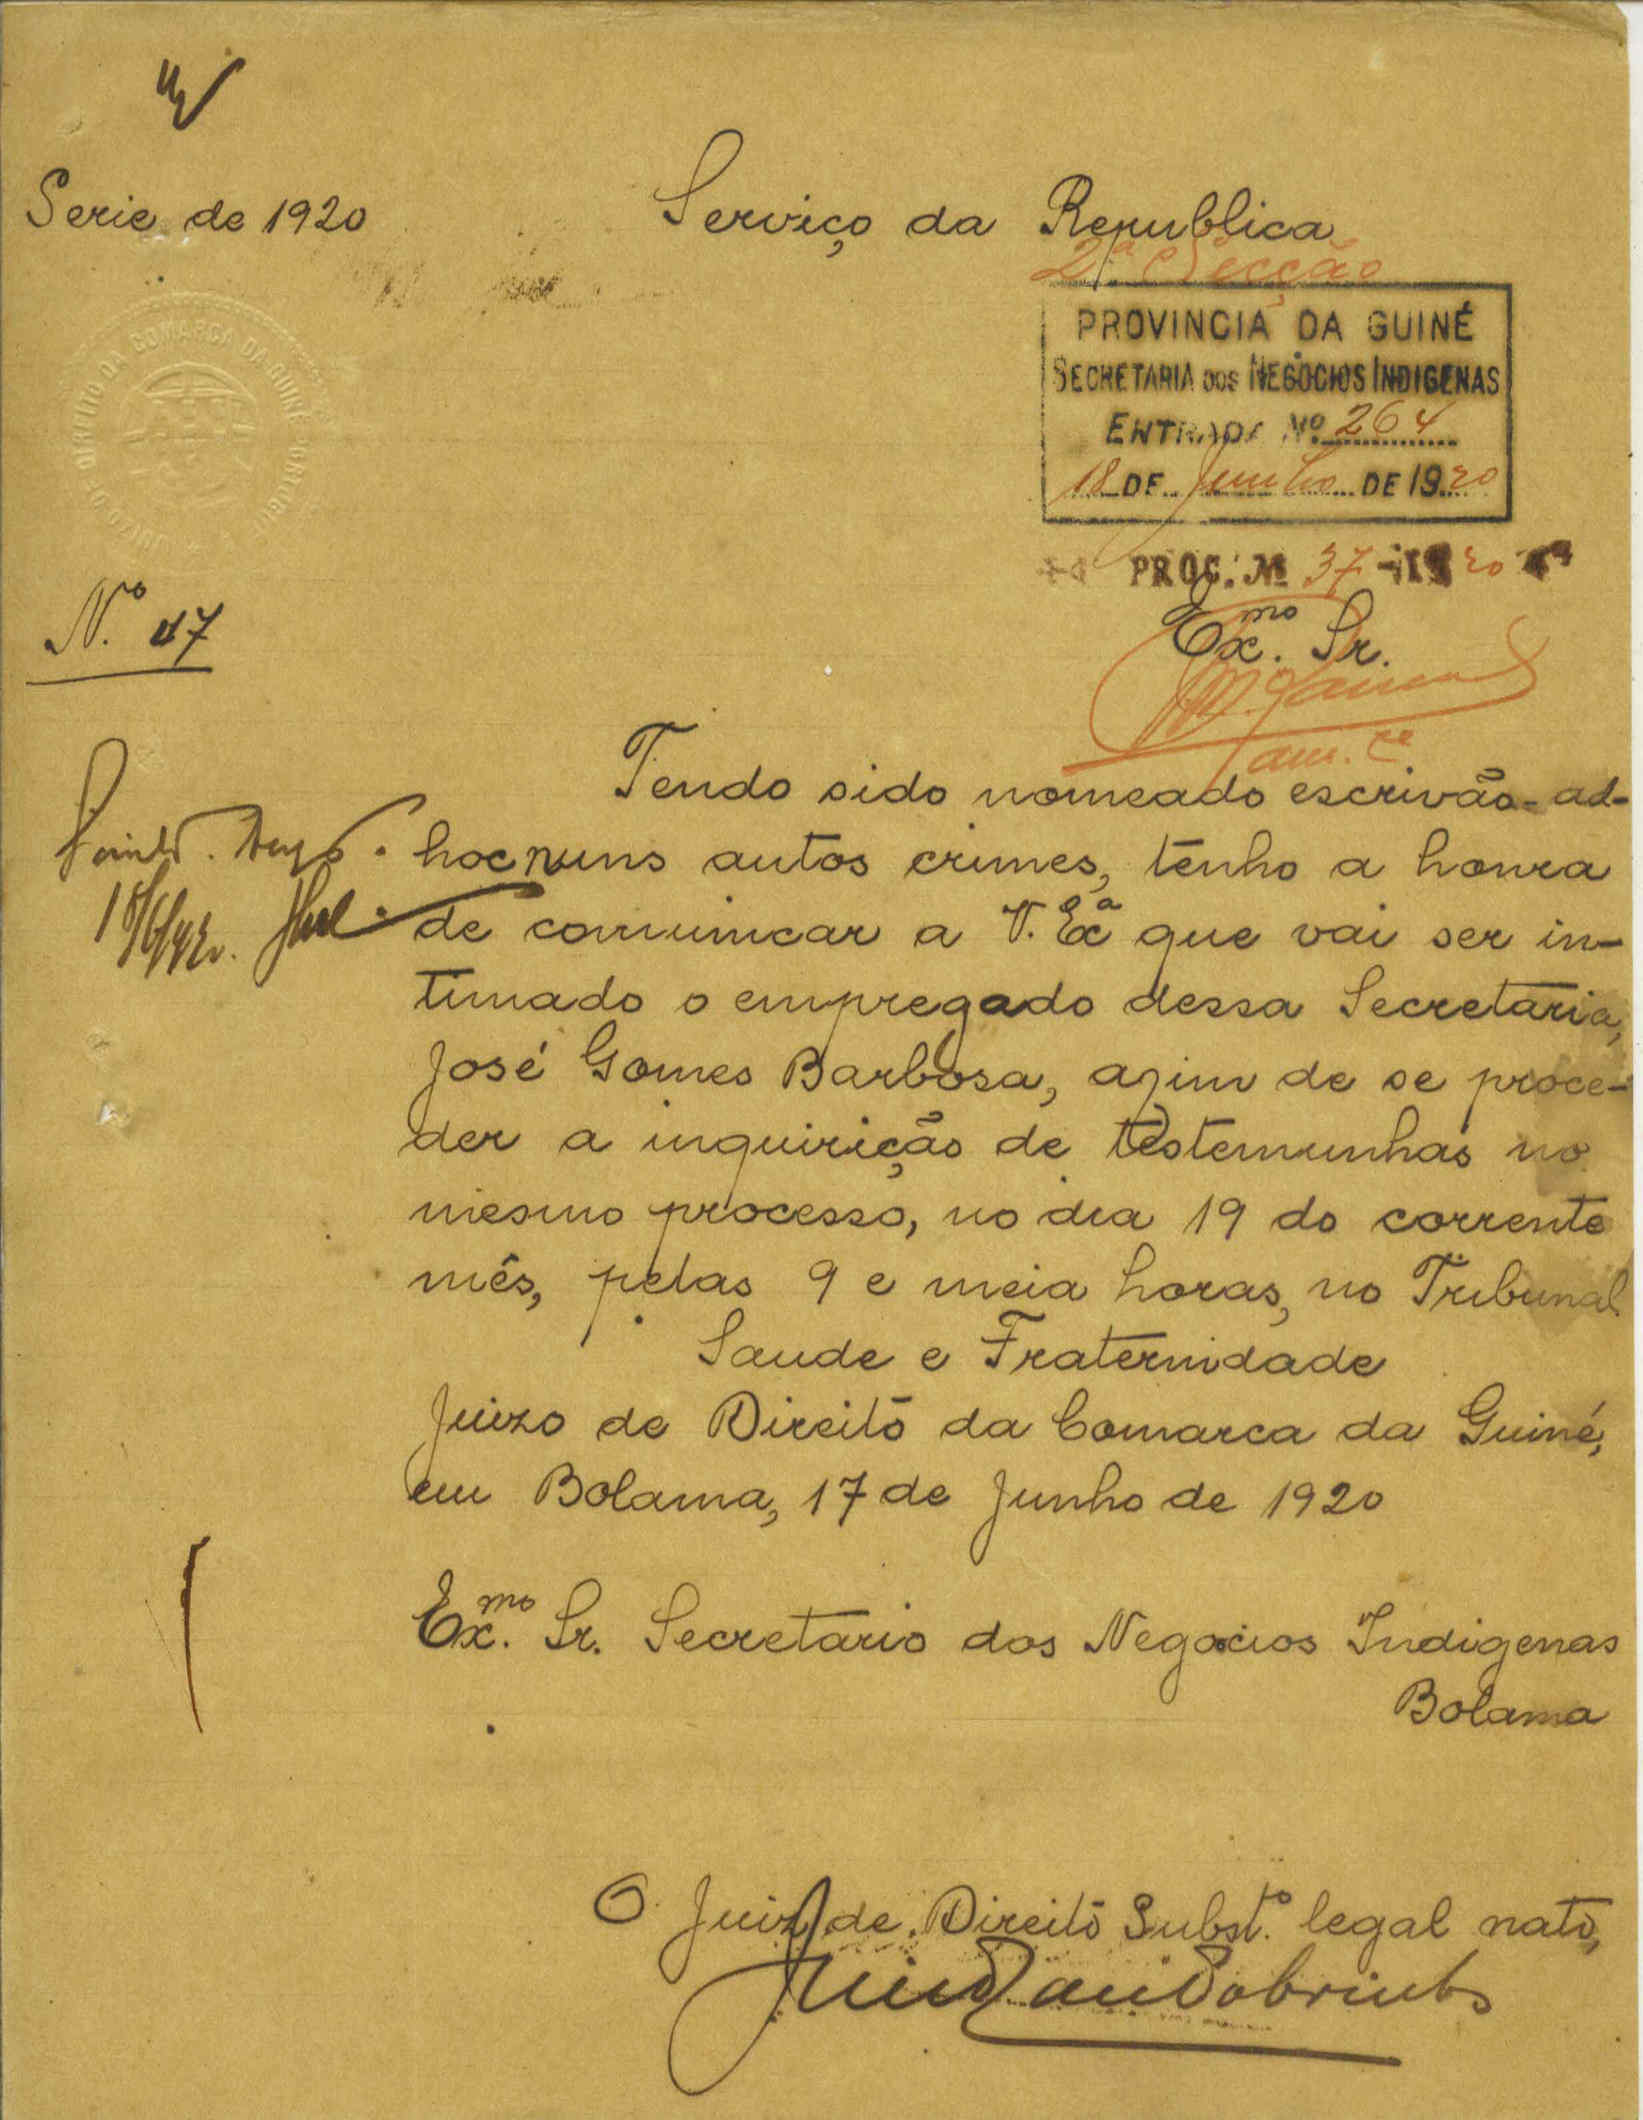 Serie de 1920
Serviço da Republica
2ª Secção
PROVINCIA DA GUINÉ
SECRETARIA DOS NEGOCIOS INDIGENAS
ENTRADA Nº 264
18 DE Junho DE 1920
JUIZO DE DIREITO DA COMARCA DA GUINÉ PORTUGUEZA
PROC. Nº 37-1920
N.º 17
Exmo. Sr.
Tendo sido nomeado escrivão-ad-
hoc nuns autos crimes, tenho a honra
de comunicar a V. Exª que vai ser in-
timado o empregado dessa Secretaria,
José Gomes Barbosa, afim de se proce-
der a inquirição de testemunhas no
mesmo processo, no dia 19 do corrente
mês, pelas 9 e meia horas, no Tribunal
Saude e Fraternidade
Juizo de Direito da Comarca da Guiné,
em Bolama, 17 de Junho de 1920
Exmo. Sr. Secretario dos Negocios Indigenas
Bolama
O Juiz de Direito Subst.to legal nato,